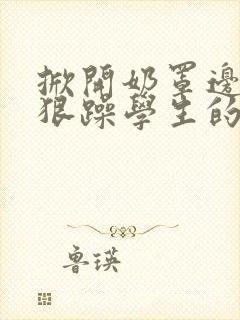 掀開奶罩邊
狠躁學生的
魯瑛